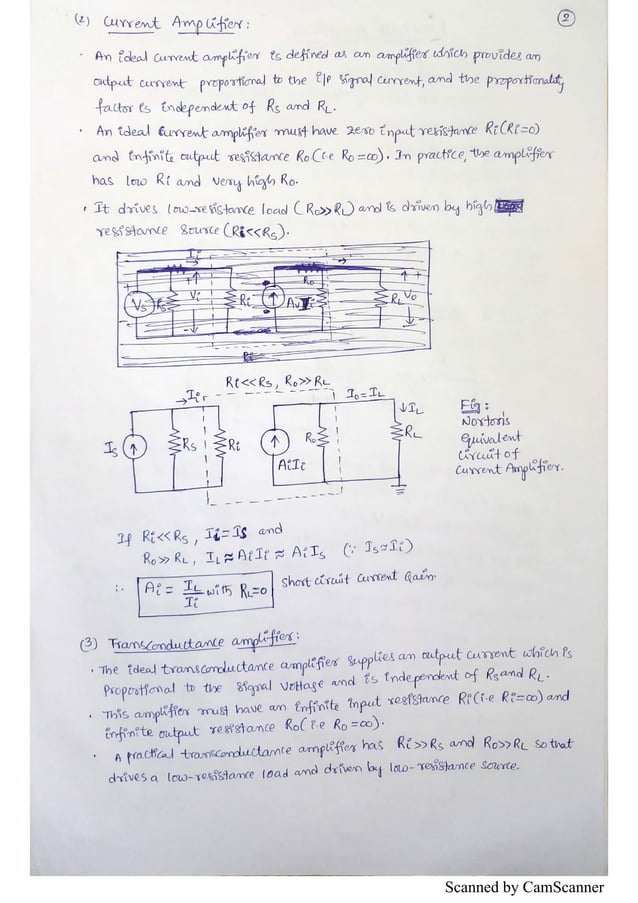 (2) Current Amplifier: 2
• An ideal current amplifier is defined as an amplifier which provides an
output current proportional to the i/p signal current, and the proportionality
factor is independent of Rs and RL.
• An ideal current amplifier must have zero input resistance Ri (Ri=0)
and infinite output resistance Ro (i.e Ro=∞). In practice, the amplifier
has low Ri and very high Ro.
• It drives low-resistance load (Ro>>RL) and is driven by high
resistance source (Ri<<Rs).
Ii
Vs Rs Vi Ri Ro RL Vo
Ri<<Rs, Ro>>RL
Ii Io=IL
Is Rs Ri AiIi Ro ↓IL RL
Fig:
Norton's
equivalent
circuit of
current Amplifier.
If Ri<<Rs, Ii=Is and
Ro>>RL, IL≈AiIi≈AiIs (∵ Is≈Ii)
∴ Ai = IL/Ii with RL=0 short circuit current Gain.
(3) Transconductance amplifier:
• The ideal transconductance amplifier supplies an output current which is
proportional to the signal voltage and is independent of Rs and RL.
• This amplifier must have an infinite input resistance Ri (i.e Ri=∞) and
infinite output resistance Ro (i.e Ro=∞).
• A practical transconductance amplifier has Ri>>Rs and Ro>>RL so that
drives a low-resistance load and driven by low-resistance source.
Scanned by CamScanner